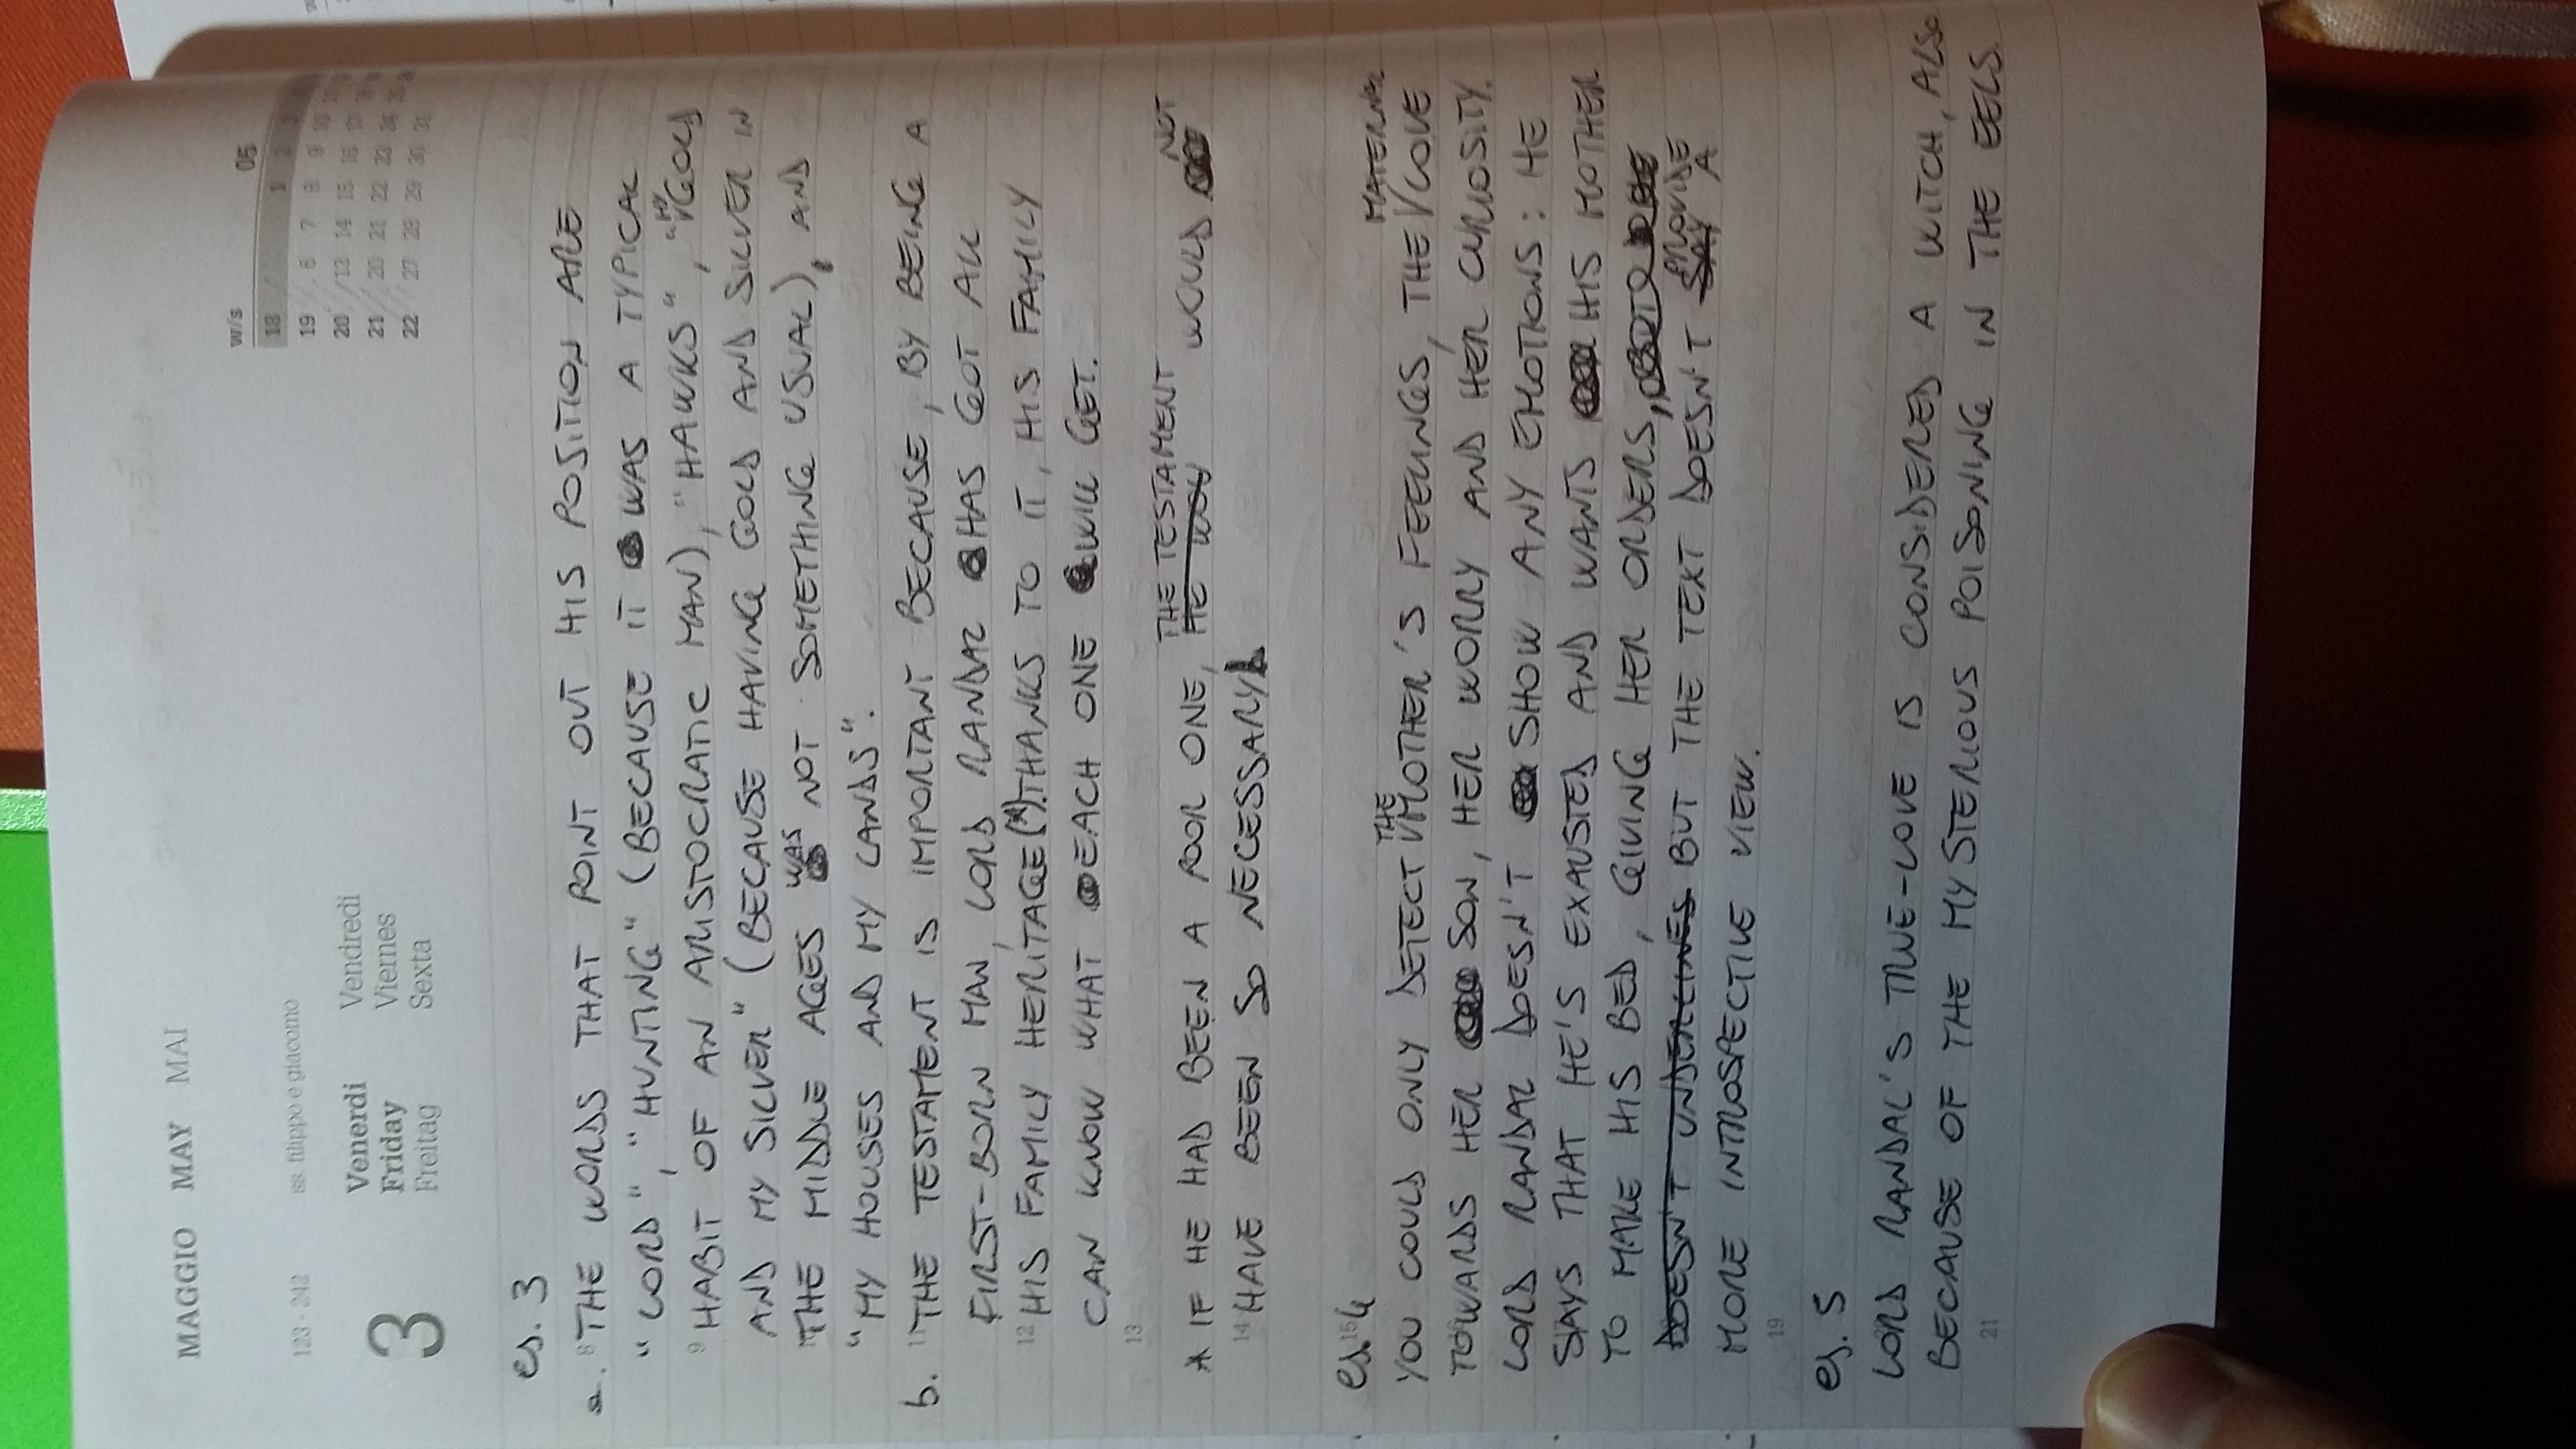 MAGGIO MAY MAI
123 - 242 ss. filippo e giacomo
3 Venerdì Vendredi
Friday Viernes
Freitag Sexta
w/s 05
18 1 2 3
19 6 7 8 9 10
20 13 14 15 16 17
21 20 21 22 23 24
22 27 28 29 30 31
es. 3
a. 8 THE WORDS THAT POINT OUT HIS POSITION ARE
"LORD", "HUNTING" (BECAUSE IT WAS A TYPICAL
9 HABIT OF AN ARISTOCRATIC MAN), "HAWKS", "MY GOLD
AND MY SILVER" (BECAUSE HAVING GOLD AND SILVER IN
THE MIDDLE AGES WAS NOT SOMETHING USUAL), AND
"MY HOUSES AND MY LANDS".
b. 11 THE TESTAMENT IS IMPORTANT BECAUSE, BY BEING A
FIRST-BORN MAN, LORD RANDAL HAS GOT ALL
12 HIS FAMILY HERITAGE(*). THANKS TO IT, HIS FAMILY
CAN KNOW WHAT EACH ONE WILL GET.
13
* IF HE HAD BEEN A POOR ONE, HE THE TESTAMENT WOULD NOT
14 HAVE BEEN SO NECESSARY
es. 4 15
YOU COULD ONLY DETECT THE MOTHER'S FEELINGS, THE MATERNAL LOVE
TOWARDS HER SON, HER WORRY AND HER CURIOSITY.
LORD RANDAL DOESN'T SHOW ANY EMOTIONS: HE
SAYS THAT HE'S EXAUSTED AND WANTS HIS MOTHER
TO MAKE HIS BED, GIVING HER ORDERS,
DOESN'T UNDERLINES BUT THE TEXT DOESN'T SAY PROVIDE A
MORE INTROSPECTIVE VIEW.
19
es. 5
LORD RANDAL'S TRUE-LOVE IS CONSIDERED A WITCH, ALSO
BECAUSE OF THE MYSTERIOUS POISONING IN THE EELS.
21